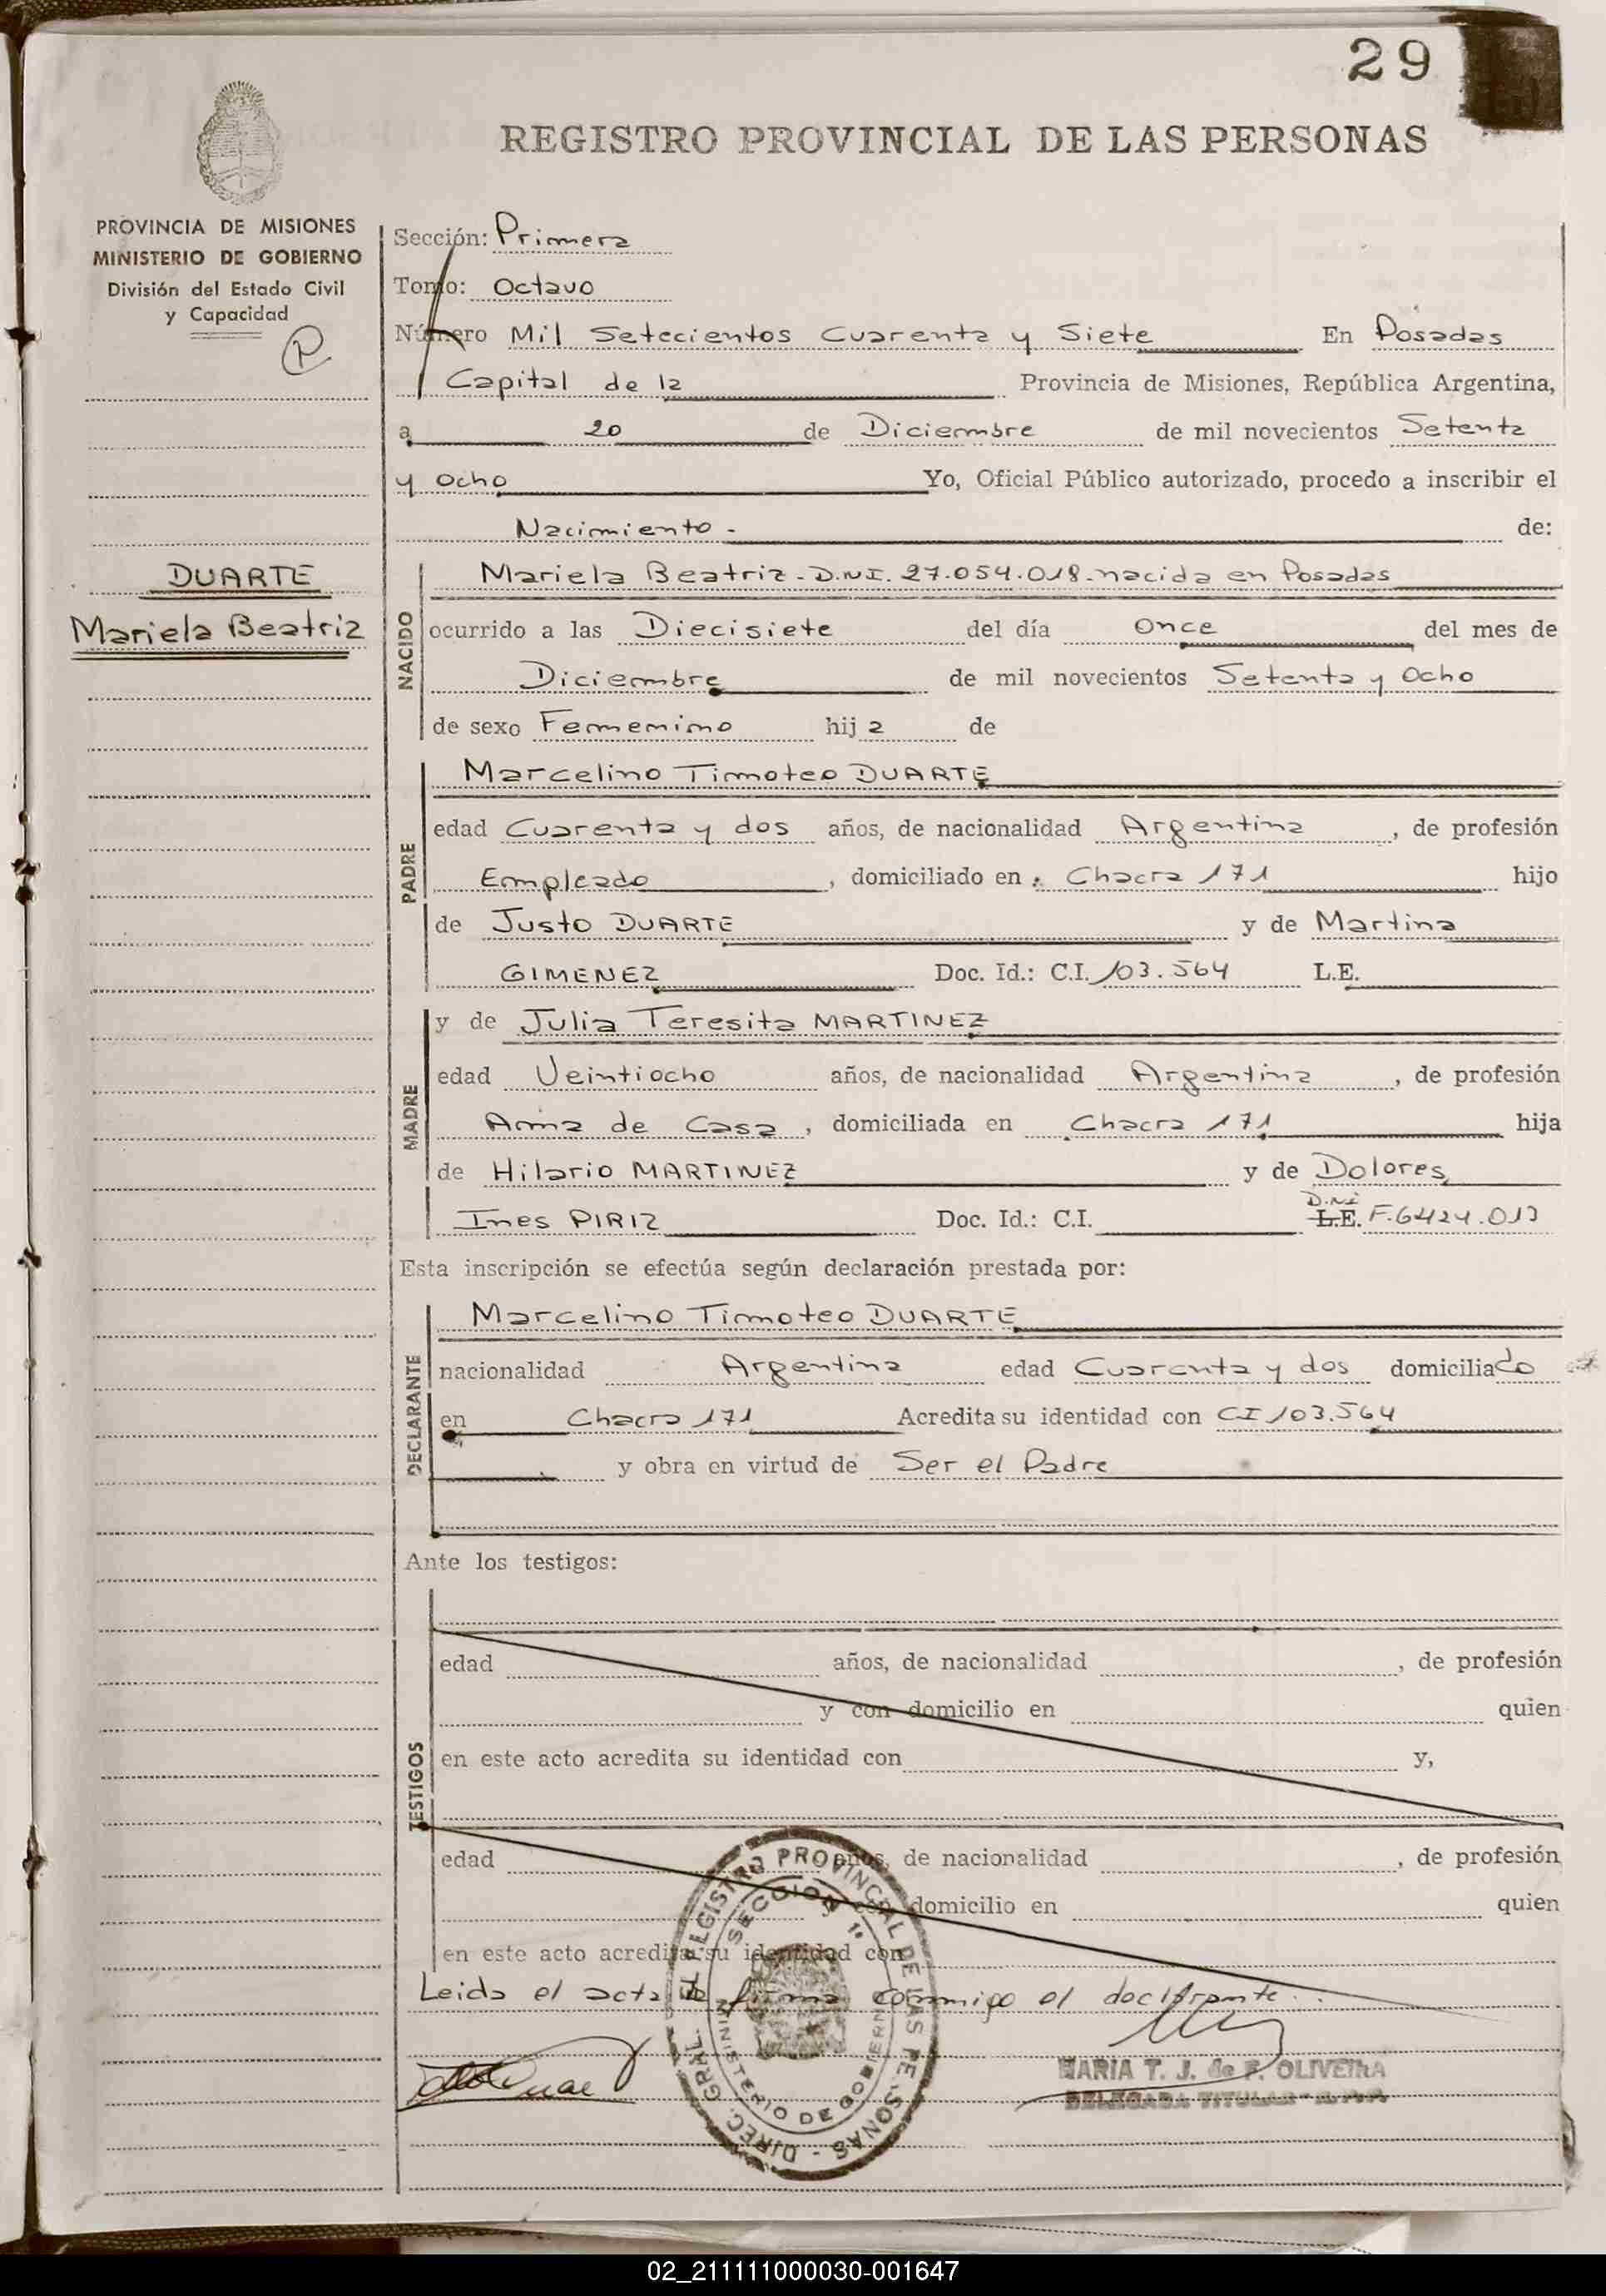 29
REGISTRO PROVINCIAL DE LAS PERSONAS
PROVINCIA DE MISIONES
MINISTERIO DE GOBIERNO
División del Estado Civil
y Capacidad
R
DUARTE
Mariela Beatriz
Sección: Primera
Tomo: Octavo
Número Mil Setecientos Cuarenta y Siete En Posadas
Capital de la Provincia de Misiones, República Argentina,
a 20 de Diciembre de mil novecientos Setenta
y Ocho Yo, Oficial Público autorizado, procedo a inscribir el
Nacimiento - de:
NACIDO
Mariela Beatriz - D.N.I. 27.054.018 - nacida en Posadas
ocurrido a las Diecisiete del día Once del mes de
Diciembre de mil novecientos Setenta y Ocho
de sexo Femenino hija de
PADRE
Marcelino Timoteo DUARTE
edad Cuarenta y dos años, de nacionalidad Argentina, de profesión
Empleado, domiciliado en: Chacra 171 hijo
de Justo DUARTE y de Martina
GIMENEZ Doc. Id.: C.I. 103.564 L.E.
MADRE
y de Julia Teresita MARTINEZ
edad Veintiocho años, de nacionalidad Argentina, de profesión
Ama de Casa, domiciliada en Chacra 171 hija
de Hilario MARTINEZ y de Dolores
Ines PIRIZ Doc. Id.: C.I. L.E. D.NI F.6424.013
Esta inscripción se efectúa según declaración prestada por:
DECLARANTE
Marcelino Timoteo DUARTE
nacionalidad Argentina edad Cuarenta y dos domiciliado
en Chacra 171 Acredita su identidad con CI 103.564
y obra en virtud de Ser el Padre
Ante los testigos:
TESTIGOS
edad años, de nacionalidad , de profesión
y con domicilio en quien
en este acto acredita su identidad con y,
edad años, de nacionalidad , de profesión
y con domicilio en quien
en este acto acredita su identidad con
Leida el acta la firma conmigo el declarante.
DIREC. GRAL. DEL REGISTRO PROVINCIAL DE LAS PERSONAS
SECCION 1ª
MINISTERIO DE GOBIERNO
MARIA T. J. de F. OLIVEIRA
DELEGADA TITULAR - R.P.P.
02_211111000030-001647